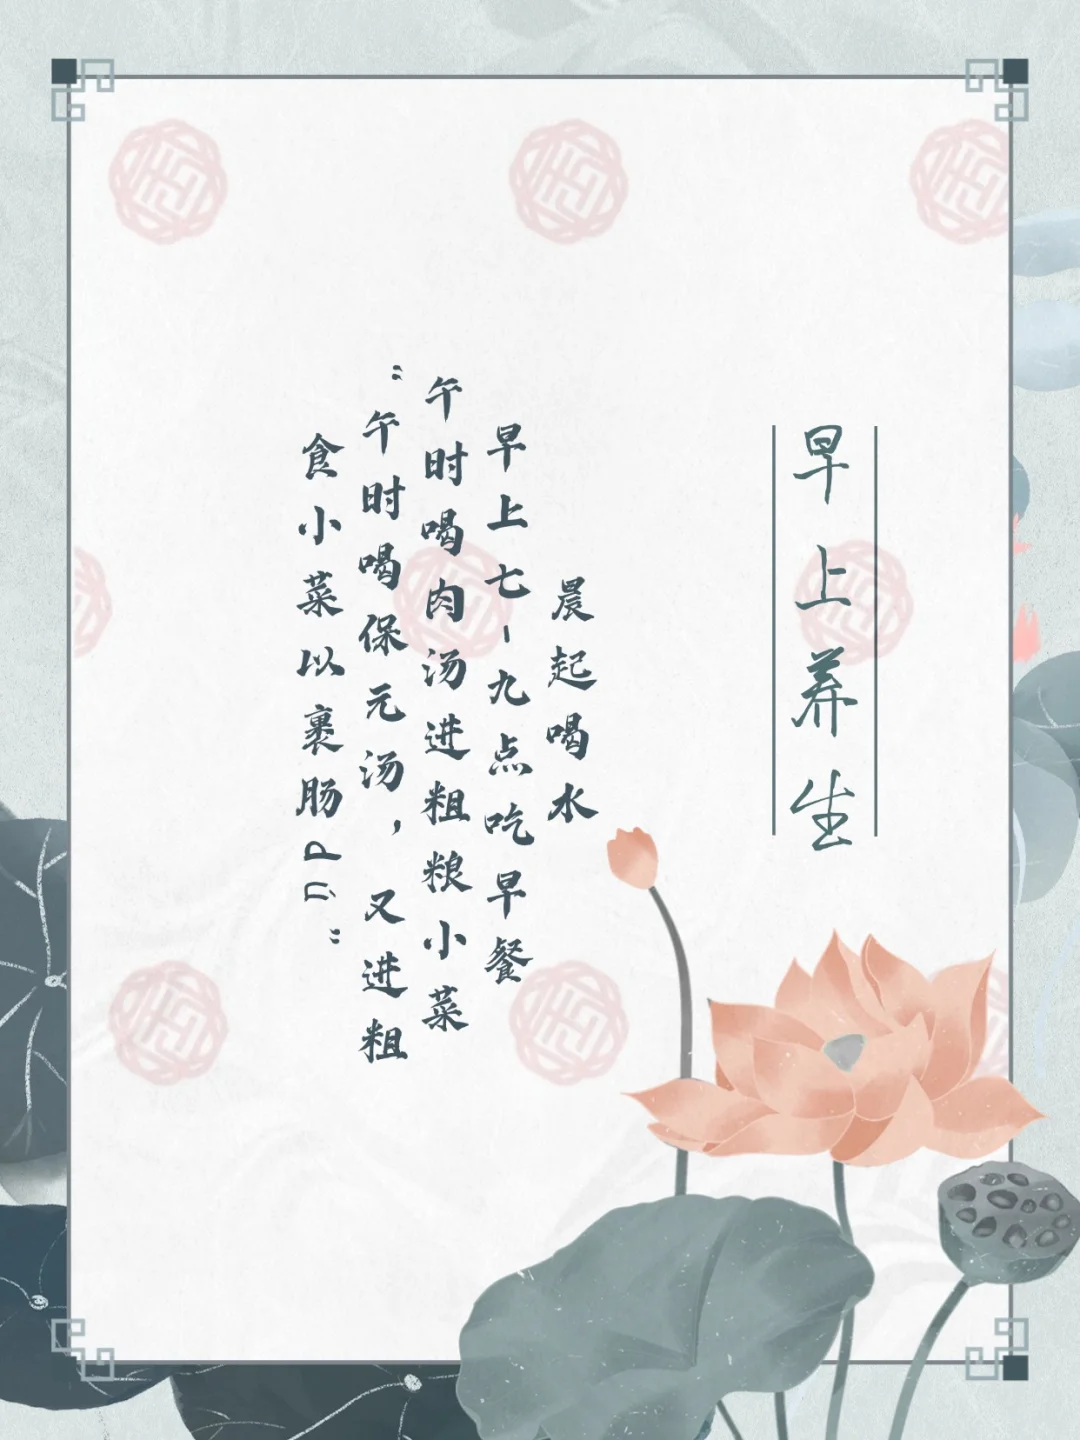 早上养生
晨起喝水
早上七-九点吃早餐
午时喝肉汤进粗粮小菜
“午时喝保元汤，又进粗
食小菜以裹肠
”